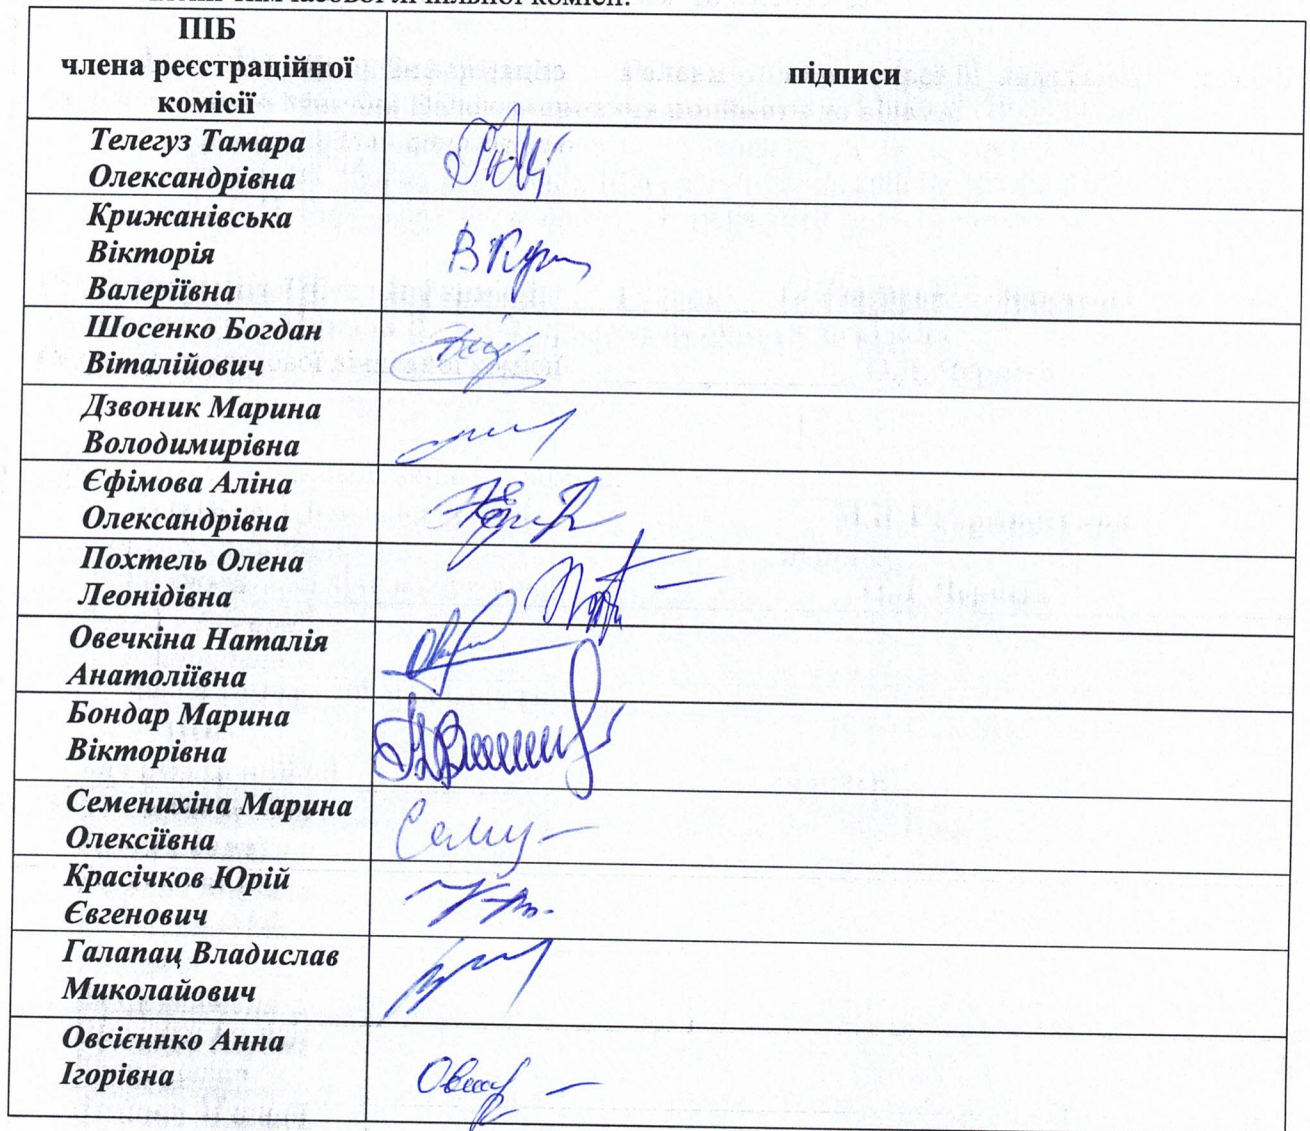 ПІБ
члена реєстраційної
комісії
підписи
Телегуз Тамара
Олександрівна
Крижанівська
Вікторія
Валеріївна
Шосенко Богдан
Віталійович
Дзвоник Марина
Володимирівна
Єфімова Аліна
Олександрівна
Похтель Олена
Леонідівна
Овечкіна Наталія
Анатоліївна
Бондар Марина
Вікторівна
Семенихіна Марина
Олексіївна
Красічков Юрій
Євгенович
Галапац Владислав
Миколайович
Овсієннко Анна
Ігорівна